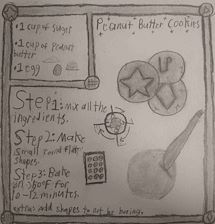 • 1 cup of sugar
• 1 cup of Peanut
butter
• 1 egg
Peanut Butter Cookies
Step 1: mix all the
ingredients.
Step 2: Make
small round flat
shapes.
Step 3: Bake
on 350°F for
10-12 minutes.
extras: add shapes to not be boring.